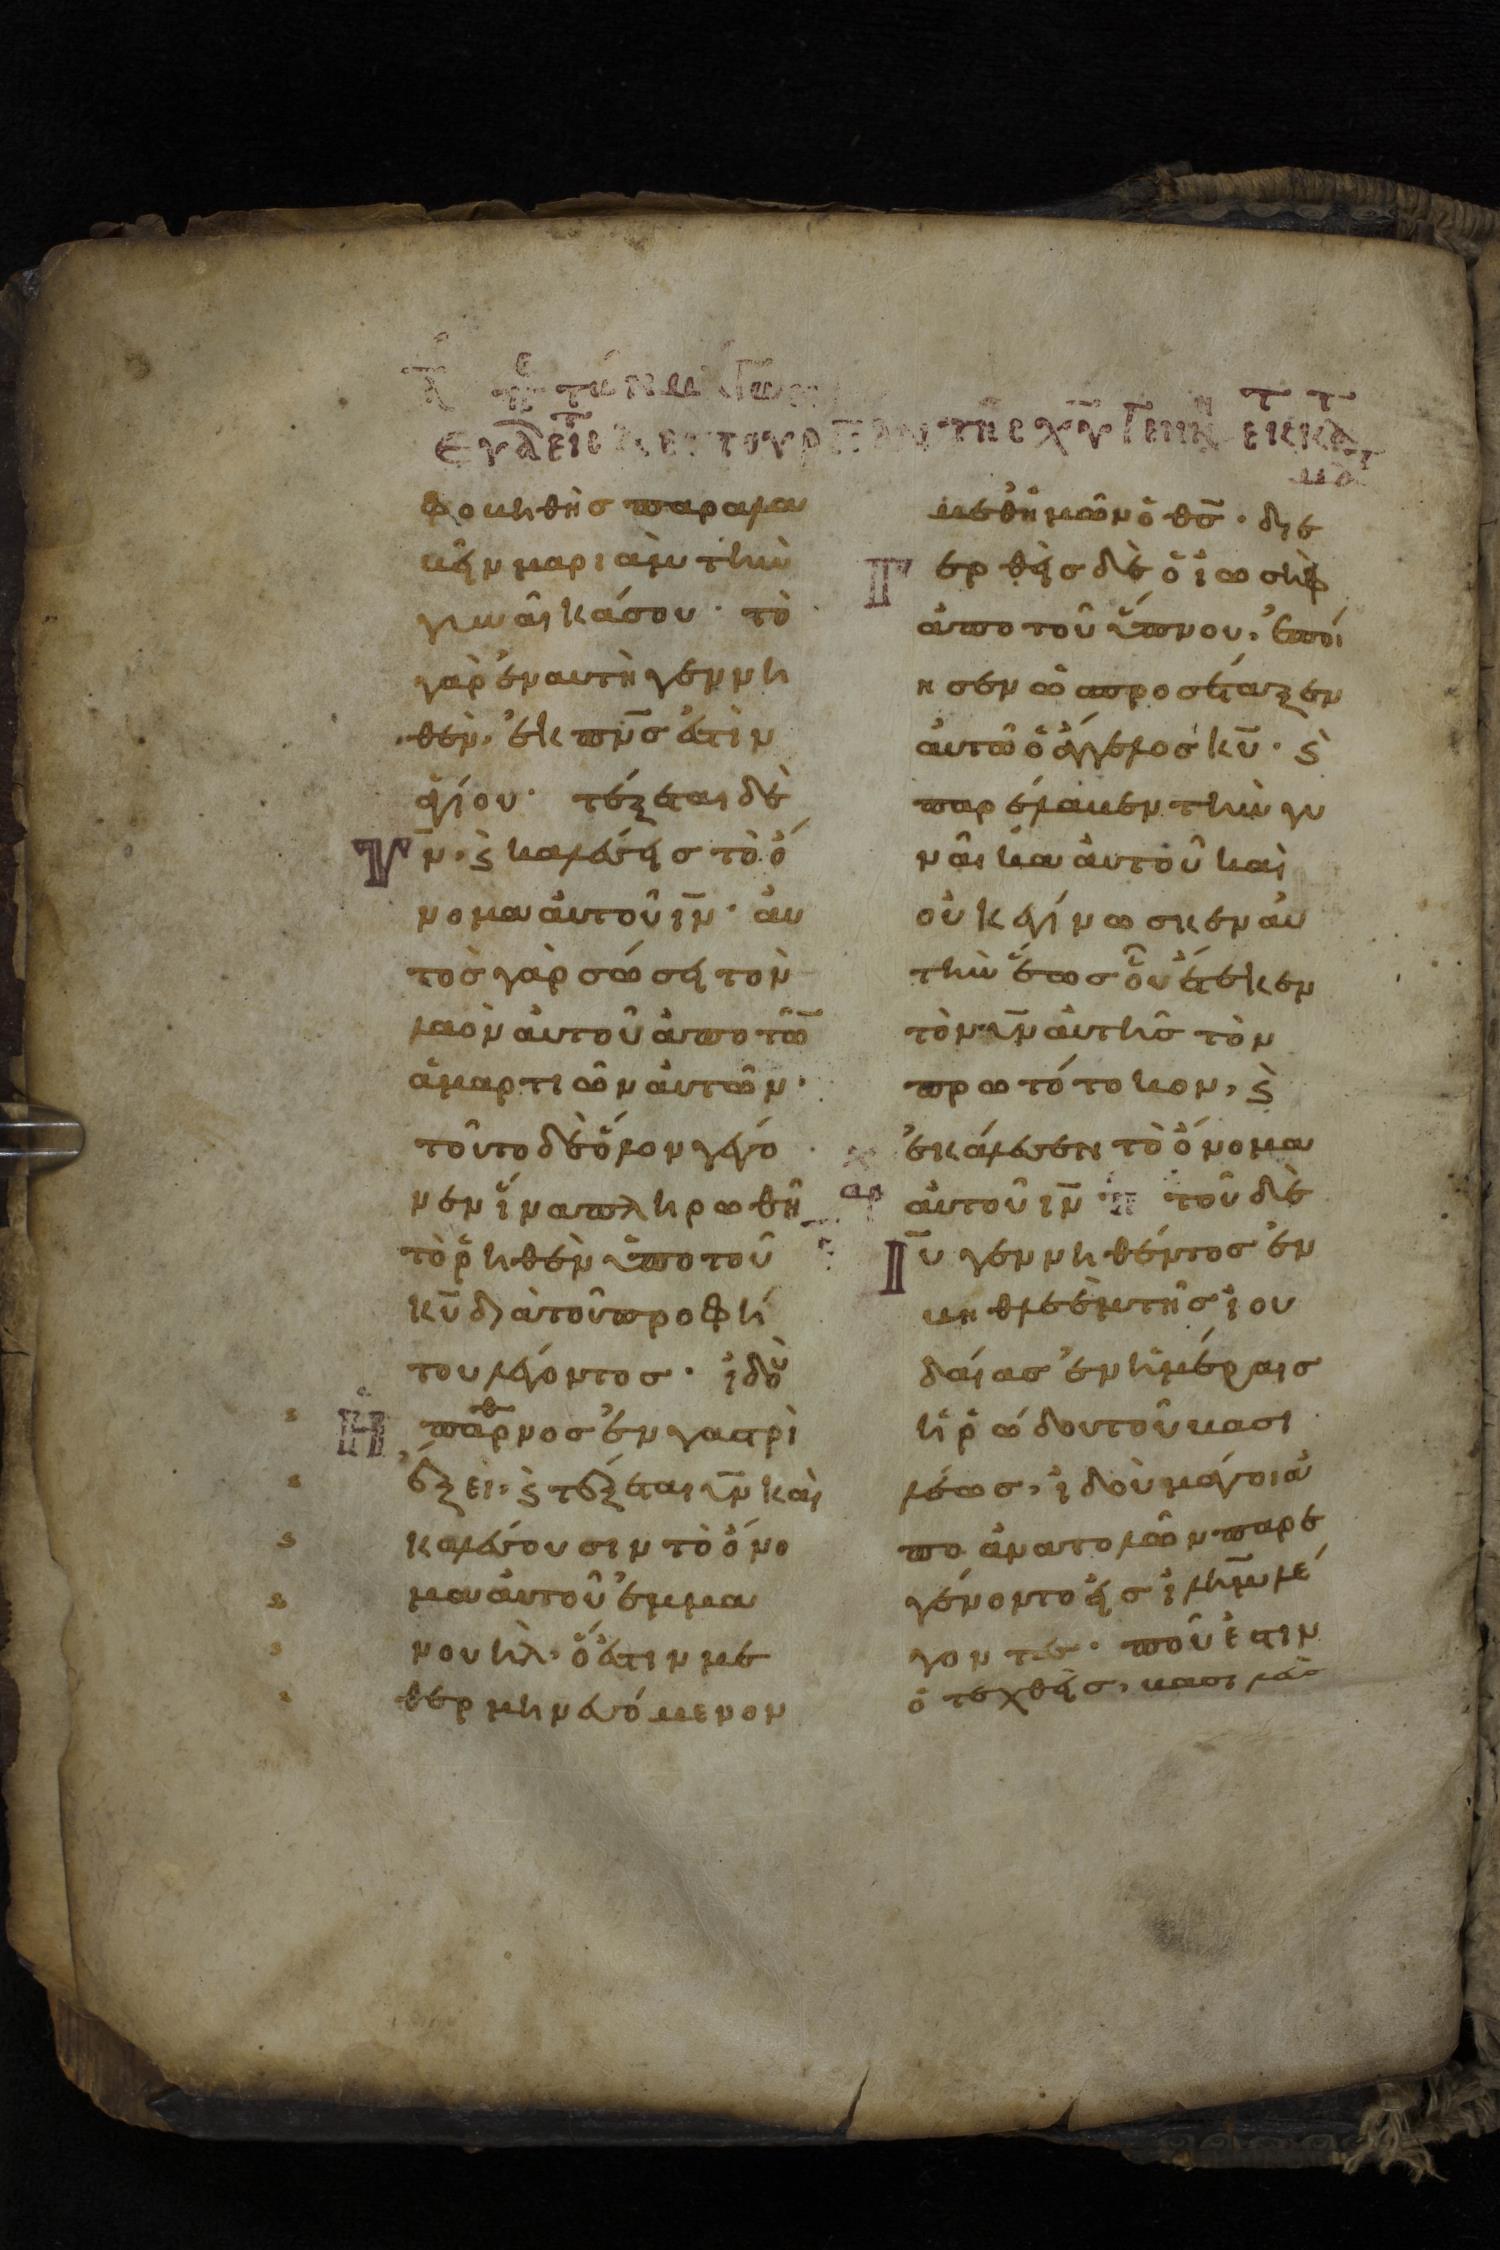 φοβηθῆς παραλα
βεῖν μαριὰμ τὴν
γυναῖκά σου· τὸ
γὰρ ἐν αὐτῆ γεννη
θὲν, ἐκ πν̅σ ἐστὶν
ἁγίου· τέξεται δὲ
Υν̅, ϛ καλέσεις τὸ ὄ
νομα αὐτοῦ ιν̅· αὐ
τὸς γὰρ σώσει τὸν
λαὸν αὐτοῦ ἀπο τῶ̅
ἁμαρτιῶν αὐτῶν·
τοῦτο δὲ ὅλον γέγο
νεν ἵνα πληρωθῆ
τὸ ῥηθὲν ὑπο του
κυ̅ διὰ τοῦ προφή
του λέγοντος· ἰδοὺ
Ἡ παρθνος ἐν γαστρὶ
ἕξει, ϛ τέξεται υν̅ καὶ
καλέσουσιν τὸ ὄνο
μα αὐτοῦ ἐμμα
νουήλ· ὅ ἐστιν με
θερμηνευόμενον
μεθ ἡμῶν ὁ θσ̅· διε
Γερθεὶς δὲ ὁ ἰωσὴφ
ἀπο τοῦ ὕπνου, ἐποί
ησεν ὡ προσέταξεν
αὐτῶ ὁ ἄγγελος κυ̅· ϛ
παρέλαβεν τὴν γυ
ναῖκα αὐτοῦ καὶ
οὐκ εγίνωσκεν αὐ
τὴν ἕως οὗ ἔτεκεν
τὸν υν̅ αὐτῆς τὸν
πρωτότοκον, ϛ
ἐκάλεσεν τὸ ὄνομα
αὐτοῦ ιν̅ τοῦ δὲ
Ιυ̅ γεννηθέντος ἐν
βηθλεὲμ τῆς ἰου
δαίας ἐν ἡμέραις
ἡρώδου τοῦ βασι
λέως, ἰδοὺ μάγοι ἀ
πο ἀνατολῶν παρε
γένοντο εἰς ἰλημ̅ λέ
γοντες· ποῦ ἐστιν
ὁ τεχθεὶς, βασιλεὺς